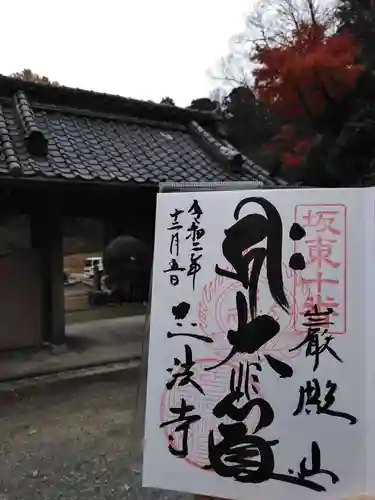 坂東十番
巌殿山
大悲
令和二年
十二月五日
正法寺